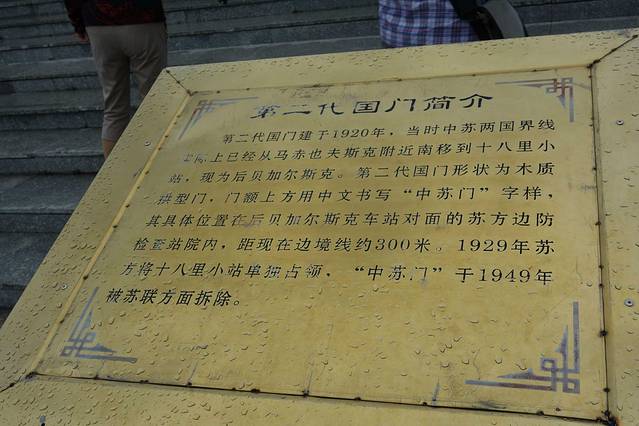 第二代国门简介
第二代国门建于1920年，当时中苏两国界线
实际上已经从马赤也夫斯克附近南移到十八里小
站，现为后贝加尔斯克。第二代国门形状为木质
拱型门，门额上方用中文书写“中苏门”字样，
其具体位置在后贝加尔斯克车站对面的苏方边防
检查站院内，距现在边境线约300米。1929年苏
方将十八里小站单独占领，“中苏门”于1949年
被苏联方面拆除。